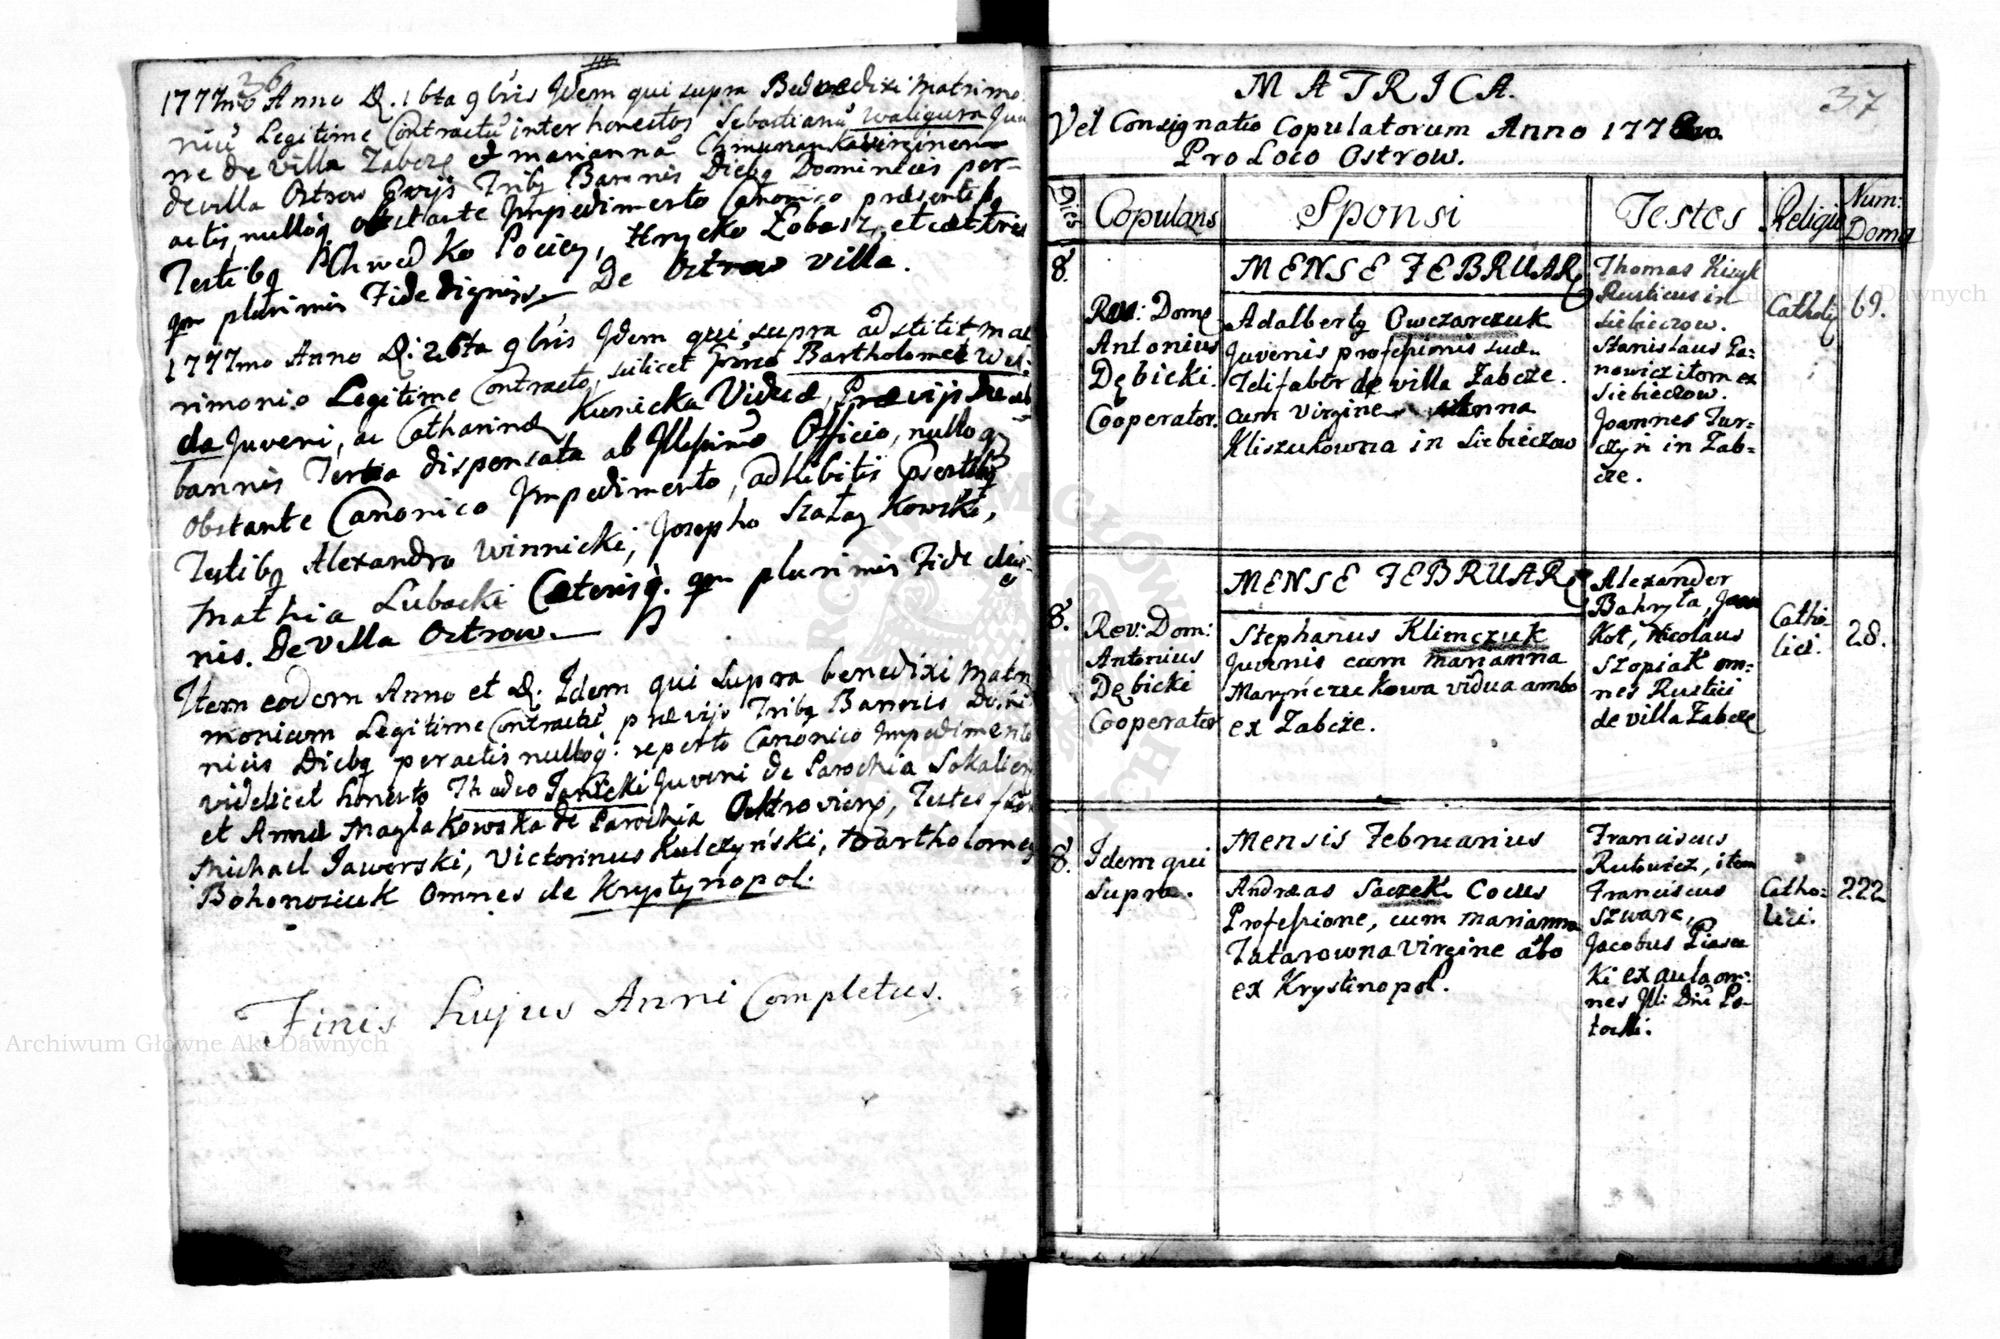 36
1777mo Anno D. 16ta 9bris Idem qui supra Benedixi Matrimo
niũ Legitime Contractũ inter honestos Sebastianũ Waligura Juve
ne de villa Zabcze et mariannã virginem
de villa Ostrow Prævijs Tribq Bannis Diebq Dominicis per-
actis, nulloq obstante Impedimento Canonico præsentibq
Testibq Chwedko Pociey, Hrycko Lobasz, et cæteris
qm plurimis Fide dignis De Ostrow villa.
1777mo Anno D: 26ta 9bris Idem qui supra adstiti mat
rimonio Legitime Contracto, scilicet Bartholomeo
da Juveni, ac Catharinæ Kunicka Viduæ, Prævijs duab
bannis Tertia dispensata ab Illssimo Officio, nulloq
obstante Canonico Impedimento, adhibitis
Testibq Alexandro Winnicki, Josepho
Mathia Lubacki Cæterisq. qm plurimis Fide dig-
nis. De villa Ostrow.
Item eodem Anno et D. Idem qui supra benedixi Matri
monium Legitime Contractũ prævijs Tribq Bannis Domi
nicis Diebq peractis nulloq: reperto Canonico Impedimento
videlicet honesto Thadeo Janicki Juveni de Parochia Sokalien
et Annæ Maglakowska de Parochia Ostroviens, Testes
Michael Jaworski, Victorinus Kulczyński, Bartholomeq
Bohonosiuk Omnes de Krystynopol.
Finis hujus Anni Completus.
37
MATRICA.
Vel Consignatio Copulatorum Anno 1778vo.
Pro Loco Ostrow.
Dies
Copulans
Sponsi
Testes
Religio
Num:
Domq
8.
Rev: Domq
Antonius
Dębicki.
Cooperator.
MENSE FEBRUAR
Adalbertq Owczarczuk
Juvenis profesionis suæ
Telifabtor de villa Zabcze.
cum virgine Anna
Kliszukowna in Siebieczow
Thomas Kiczyk
Rusticus in
Siebieczow.
Stanislaus Pa:
nowicz itom ex
Siebieczow.
Joannes Tur-
czyn in Zab=
cze.
Catholq
69.
8.
Rev: Dom:
Antonius
Dębicki
Cooperator
MENSE FEBRUAR
Stephanus Klimczuk
Juvenis cum Marianna
Marynczukowa vidua ambo
ex Zabcze.
Alexander
Bahryta, Joan
Kot, Nicolaus
Szopiak om:
nes Rustici
de villa Zabcze
Catho
lici.
28.
8.
Idem qui
supra.
Mensis Februarius
Andræas Saczek Cocus
Profesione, cum Marianna
Tatarowna Virgine abo
ex Krystinopol.
Franciscus
Rutowicz, item
Franciscus
Szwarc,
Jacobus Piasec
ki ex aula om:
nes Ill: Dni Po-
tocki.
Catho:
lici.
222
Archiwum Główne Akt Dawnych